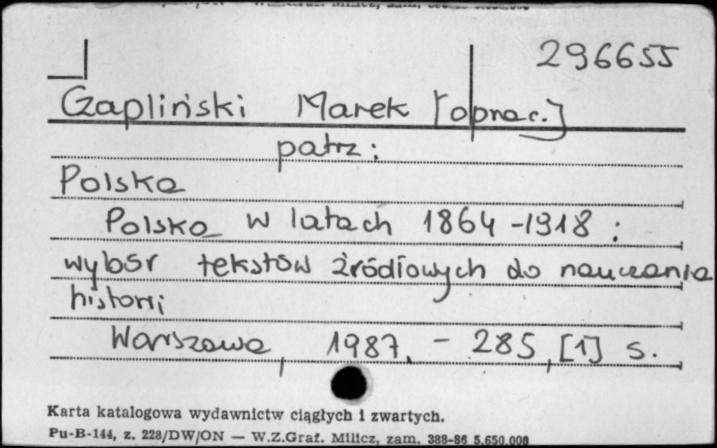 296655
Czapliński Marek [oprac.]
patrz:
Polska
Polska w latach 1864-1918 :
wybór tekstów źródłowych do nauczania
historii
Warszawa, 1987. - 285, [1] s.
Karta katalogowa wydawnictw ciągłych i zwartych.
Pu-B-144, z. 228/DW/ON — W.Z.Graf. Milicz, zam. 388-86 5.650.000